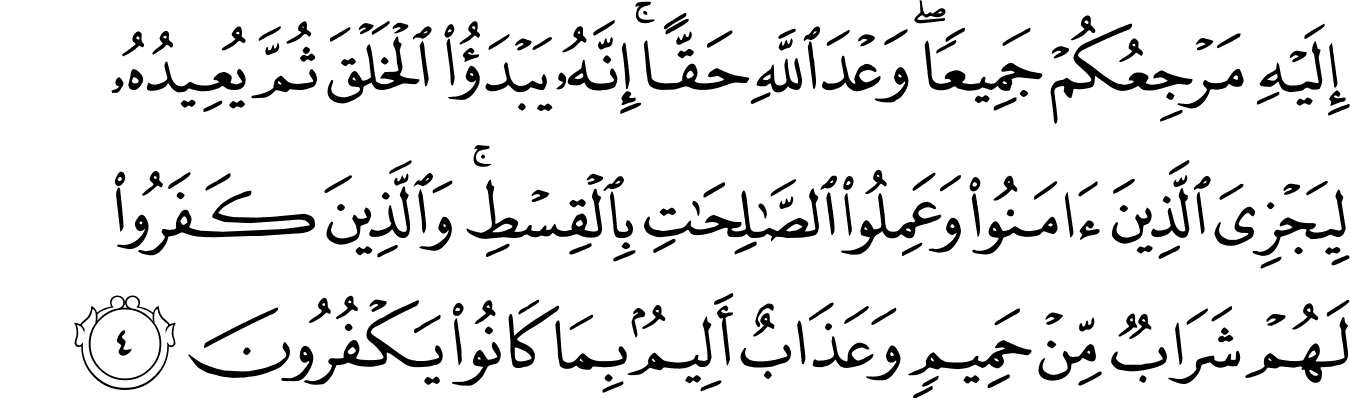 إِلَيْهِ مَرْجِعُكُمْ جَمِيعًا ۖ وَعْدَ ٱللَّهِ حَقًّا ۚ إِنَّهُۥ يَبْدَؤُا۟ ٱلْخَلْقَ ثُمَّ يُعِيدُهُۥ
لِيَجْزِىَ ٱلَّذِينَ ءَامَنُوا۟ وَعَمِلُوا۟ ٱلصَّـٰلِحَـٰتِ بِٱلْقِسْطِ ۚ وَٱلَّذِينَ كَفَرُوا۟
لَهُمْ شَرَابٌ مِّنْ حَمِيمٍ وَعَذَابٌ أَلِيمٌۢ بِمَا كَانُوا۟ يَكْفُرُونَ ٤